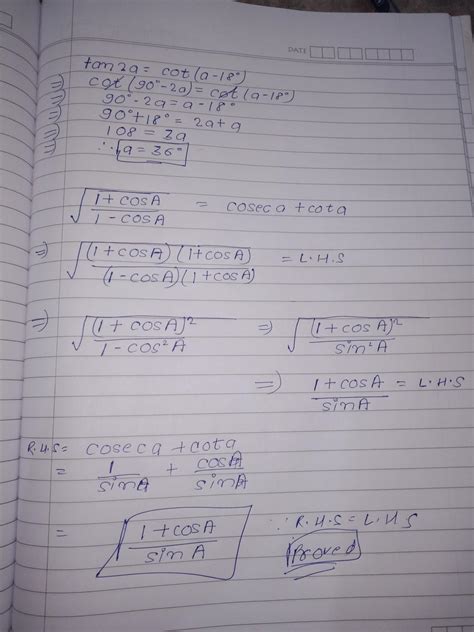 DATE
tan2a = cot(a-18°)
⇒ cot(90°-2a) = cot(a-18°)
⇒ 90°-2a = a-18°
⇒ 90°+18° = 2a+a
⇒ 108 = 3a
∴ a = 36°
√((1+cosA)/(1-cosA)) = coseca + cota
⇒ √((1+cosA)(1+cosA)/(1-cosA)(1+cosA)) = L.H.S
⇒ √((1+cosA)²/(1-cos²A)) ⇒ √((1+cosA)²/sin²A)
⇒ (1+cosA)/sinA = L.H.S
R.H.S = coseca + cota
= 1/sinA + cosA/sinA
= (1+cosA)/sinA ∵ R.H.S = L.H.S
Proved